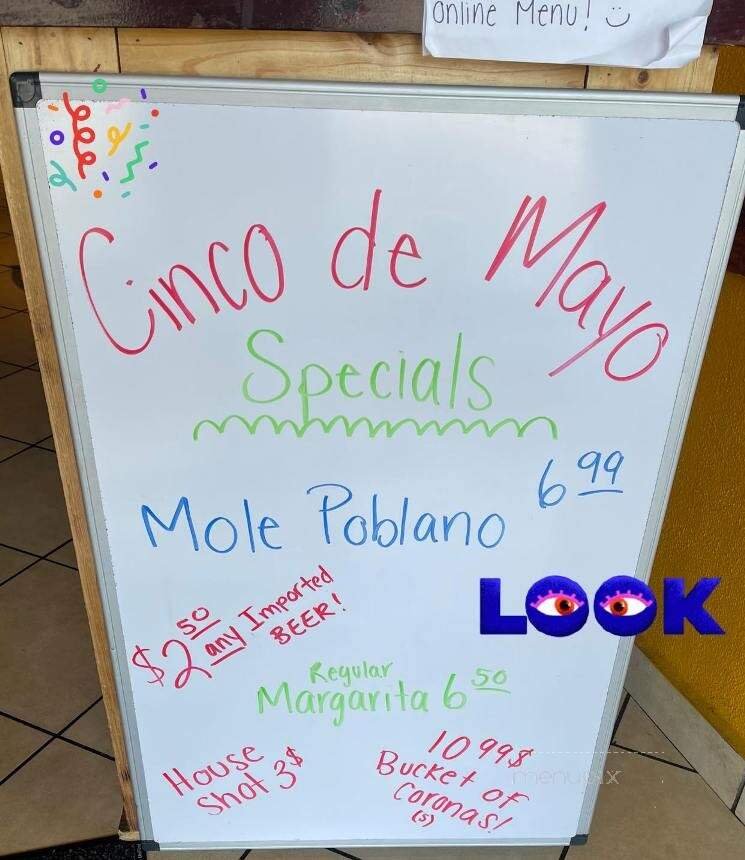 online Menu! :)
Cinco de Mayo
Specials
Mole Poblano 6 99
$2 50 any Imported
BEER!
LOOK
Regular
Margarita 6 50
House
shot 3$
10 99$
Bucket of
Coronas!
(5)
menupix